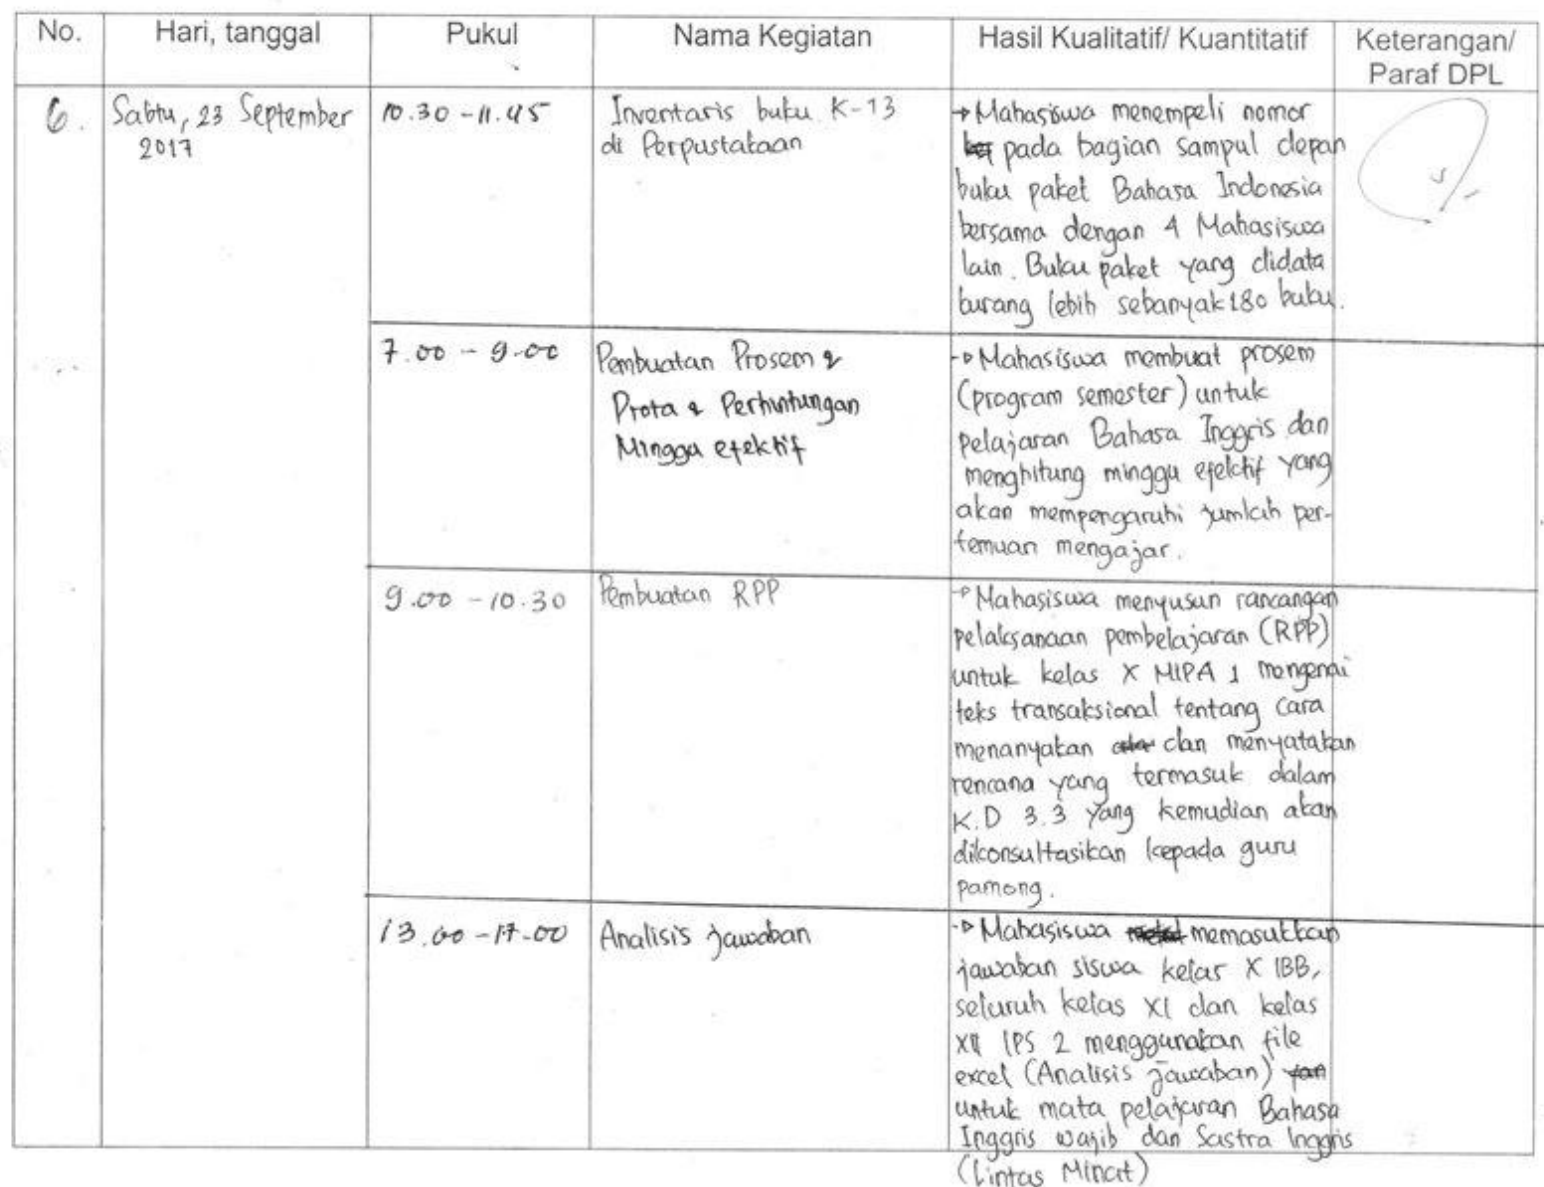 No. Hari, tanggal Pukul Nama Kegiatan Hasil Kualitatif/ Kuantitatif Keterangan/
Paraf DPL
6. Sabtu, 23 September
2017
10.30 - 11.45
Inventaris buku K-13
di Perpustakaan
→ Mahasiswa menempeli nomor
pada bagian sampul depan
buku paket Bahasa Indonesia
bersama dengan 4 Mahasiswa
lain. Buku paket yang didata
kurang lebih sebanyak 180 buku.
7.00 - 9.00
Pembuatan Prosem &
Prota & Perhintungan
Minggu efektif
→ Mahasiswa membuat prosem
(program semester) untuk
pelajaran Bahasa Inggris dan
menghitung minggu efektif yang
akan mempengaruhi jumlah per-
temuan mengajar.
9.00 - 10.30
Pembuatan RPP
→ Mahasiswa menyusun rancangan
pelaksanaan pembelajaran (RPP)
untuk kelas X MIPA 1 mengenai
teks transaksional tentang cara
menanyakan dan menyatakan
rencana yang termasuk dalam
K.D 3.3 yang kemudian akan
dikonsultasikan kepada guru
pamong.
13.00 - 17.00
Analisis jawaban
→ Mahasiswa memasukkan
jawaban siswa kelas X IBB,
seluruh kelas XI dan kelas
XII IPS 2 menggunakan file
excel (Analisis jawaban)
untuk mata pelajaran Bahasa
Inggris wajib dan Sastra Inggris
(Lintas Minat)